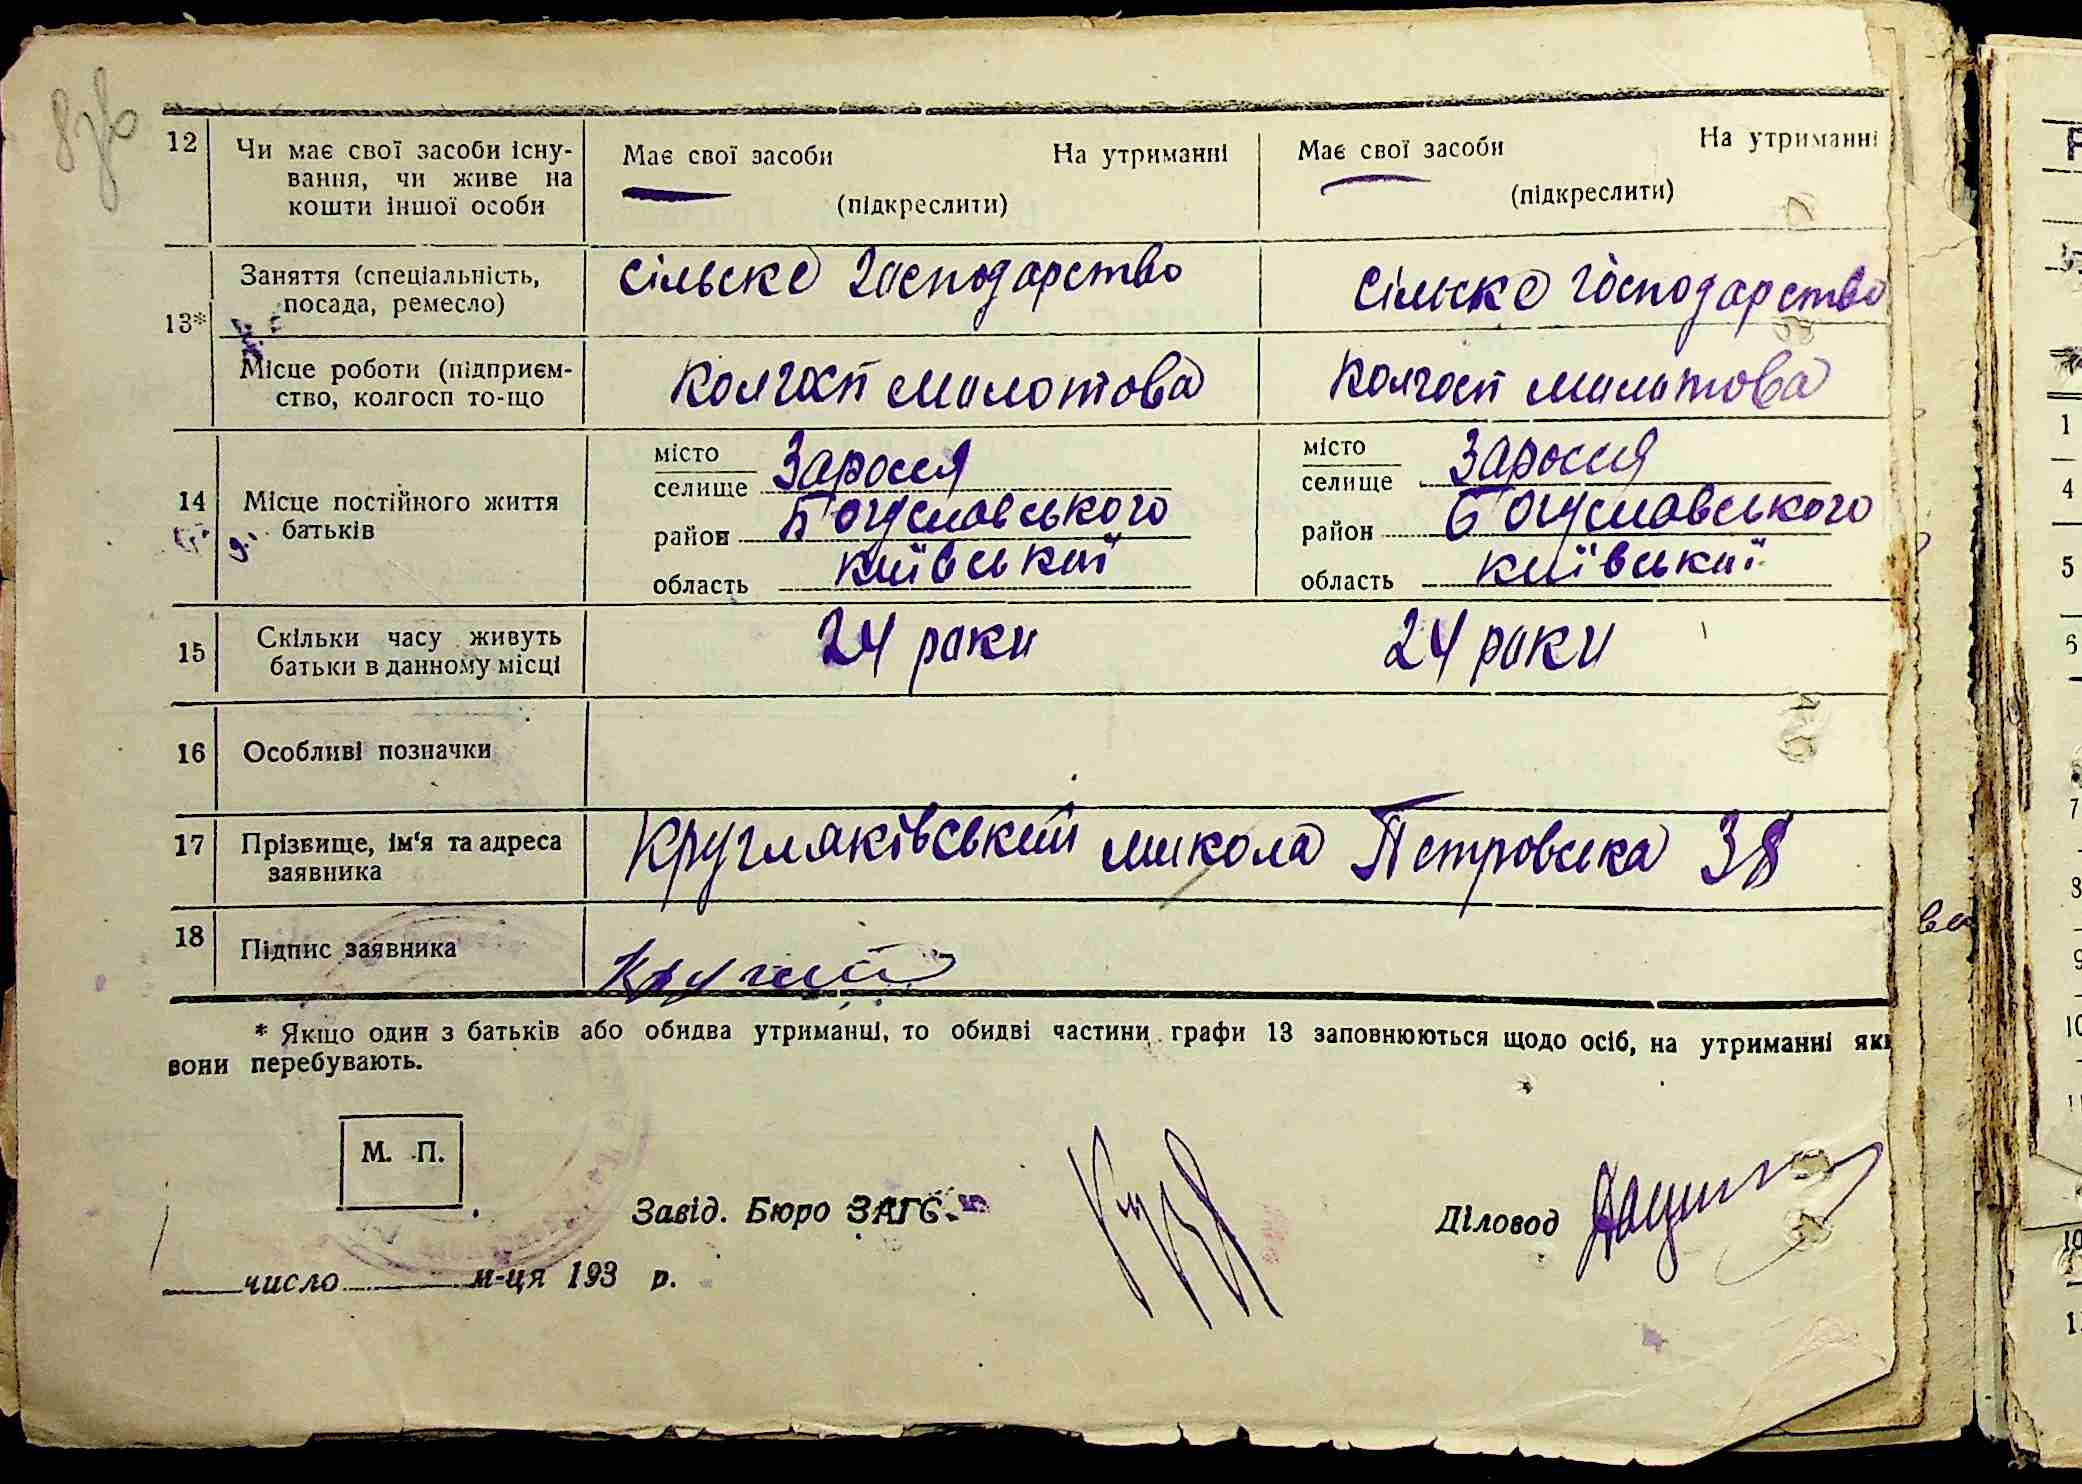 12 Чи має свої засоби існу-
вання, чи живе на
кошти іншої особи
Має свої засоби На утриманні
(підкреслити)
Має свої засоби На утриманні
(підкреслити)
13*
Заняття (спеціальність,
посада, ремесло)
сільске господарство
сільске господарство
Місце роботи (підприєм-
ство, колгосп то-що
Колгосп милотова
Колгосп милотова
14 Місце постійного життя
батьків
місто
селище Заросся
район Богуславського
область київської
місто
селище Заросся
район Богуславського
область київської
15 Скільки часу живуть
батьки в данному місці
24 роки
24 роки
16 Особливі позначки
17 Прізвище, ім'я та адреса
заявника
Кругляківський микола Петровська 38
18 Підпис заявника
* Якщо один з батьків або обидва утриманці, то обидві частини графи 13 заповнюються щодо осіб, на утриманні яки
вони перебувають.
М. П.
Завід. Бюро ЗАГС.
Діловод
число м-ця 193 р.